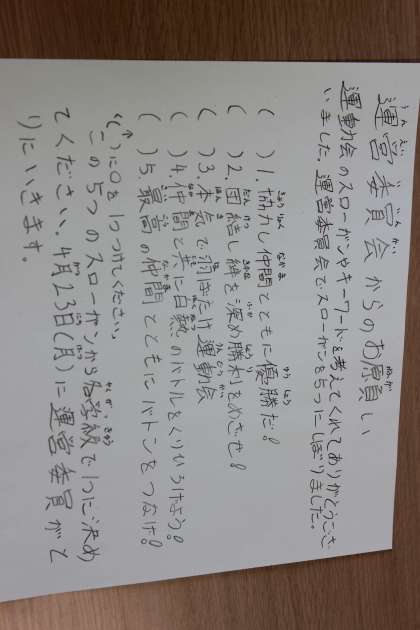 運営委員会からのお願い
運動会のスローガンやキーワードを考えてくれてありがとうござ
いました。運営委員会でスローガンを5つにしぼりました。
( )1.協力し仲間とともに優勝だ!
( )2.団結し絆を深め勝利をめざせ!
( )3.本気で羽ばたけ運動会
( )4.仲間と共に白熱のバトルをくりひろげよう!
( )5.最高の仲間とともにバトンをつなげ!
↑
( )に○を1つつけてください。
この5つのスローガンから各学級で1つに決め
てください。4月23日(月)に運営委員がと
りにいきます。